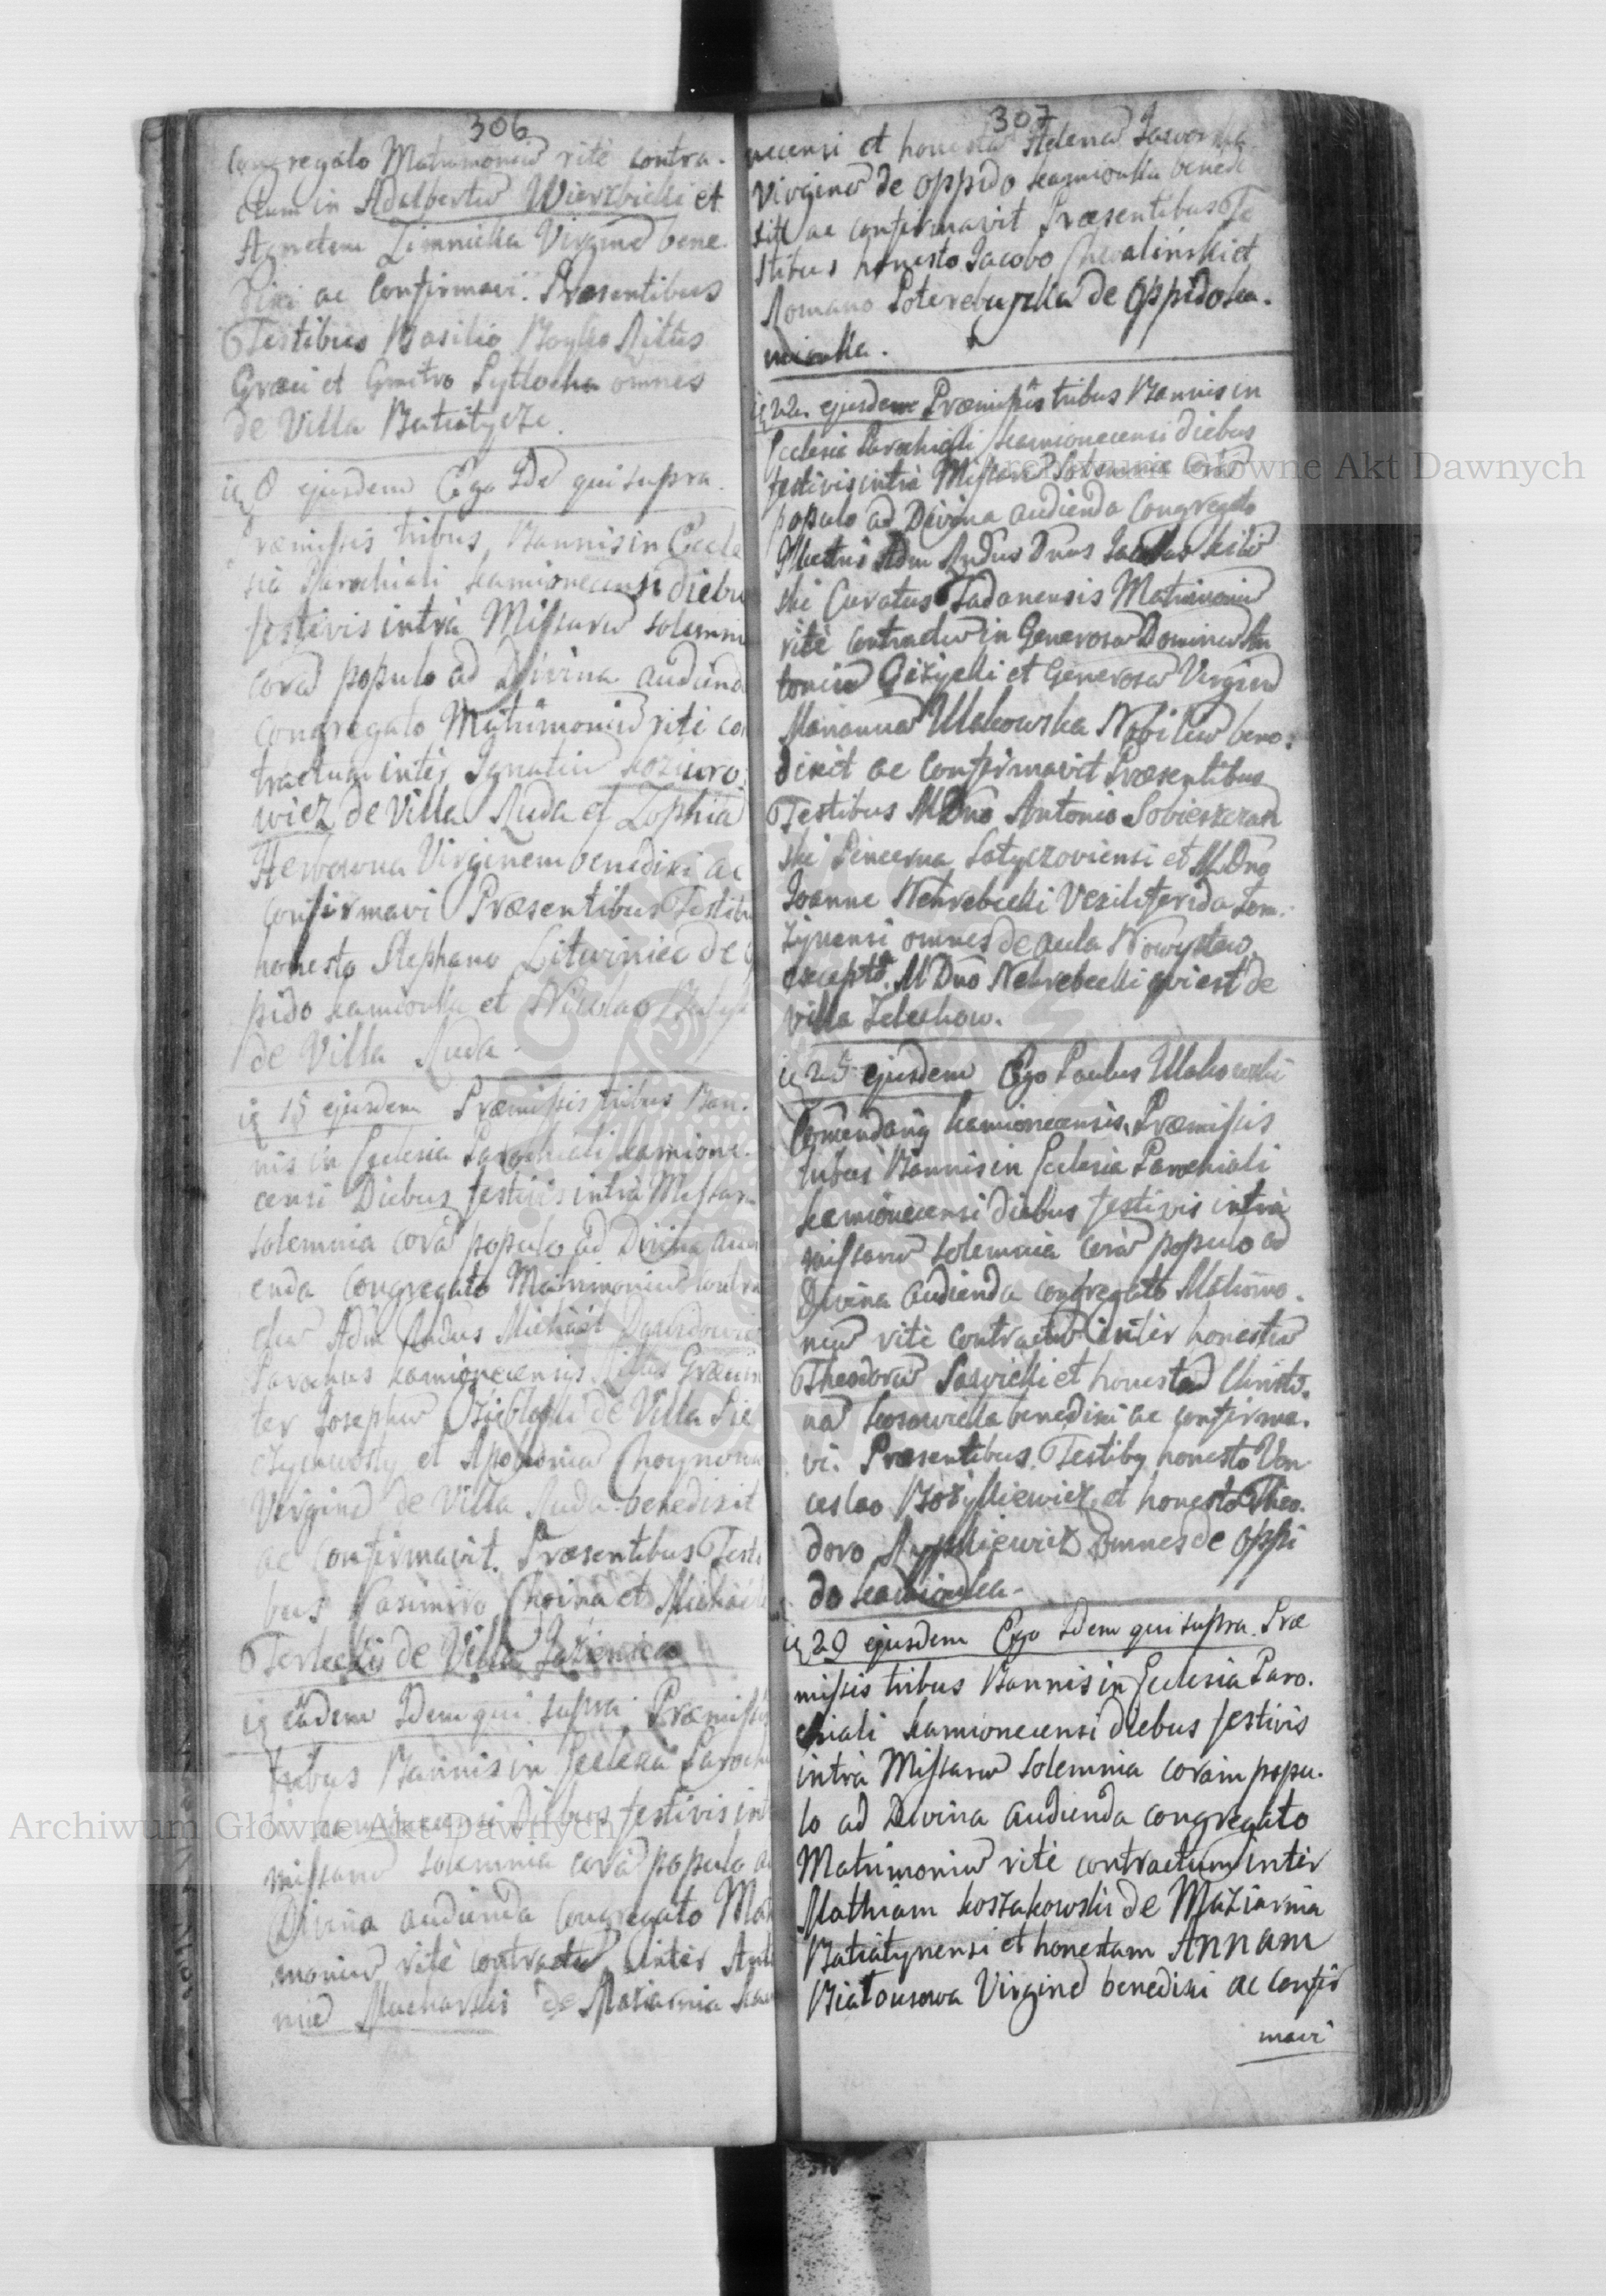 306
congregato Matrimoniũ ritè contra-
ctum in Adalbertũ Wierzbicki et
Agnetem Zimnicka Virginẽ bene-
dixi ac Confirmavi. Præsentibus
Testibus Basilio Boyko Ritûs
Græci et Gmitro Pytlocha omnes
de Villa Batiatycze.
ie 8 ejusdem Ego Idẽ qui supra
Præmissis tribus Bannis in Eccle
sia Parochiali Kamionecensi diebu
festivis intrà Missarũ solemnia
corã populo ad Divina audienda
congregato Matrimoniũ ritè con
tractum inter Ignatiũ Koziuro
wicz de Villa Ruda et Zophiã
Virginem benedixi ac
confirmavi Præsentibus Testibu
honesto Stephano Litwiniec de
pido Kamionka et Nicolao
de Villa Ruda.
ie 15 ejusdem Præmissis tribus Ban-
nis in Ecclesia Parochiali Kamione-
censi Diebus festivis intrà Missarũ
solemnia corã populo ad Divina audi
enda congregato Matrimoniũ contra
ctũ Adm Rndus Michael Dawidowicz
Parochus Kamionecensis Ritûs Græci in
ter Josephũ de Villa
et Apoloniã Choynowna
Virginẽ de Villa Ruda benedixit
ac Confirmavit. Præsentibus Testi
bus Casimiro Choina et Michaele
Terlecki de Villa Łazienica
ie eâdem Idem qui supra Præmissis
tribus Bannis in Ecclesia Parochia
Kamionecensi Diebus festivis int
missarũ solemnia corã populo a
Divina audienda Congregato Mat
moniũ ritè contractũ inter Anto
niũ Mucharski de Maziarnia Kam
307
necensi et honestã Helenã
Virginẽ de oppido Kamionka bened
ixit ac confirmavit Præsentibus Te
stibus honesto Jacobo Chwaliński et
Romano de Oppido Ka-
mionka.
ie 22 ejusdem Præmissis tribus Bannis in
Ecclesia Parochiali Kamionecensi diebus
festivis intrà Missarũ Solemnia corã
populo ad Divina audienda Congregato
Illustris Adm Rndus Dnus
ski Curatus Tadanensis Matrimoniũ
ritè contractũ in Generosũ Dominũ An
toniũ Giżycki et Generosã Virginẽ
Mariannã Makowska Nobiliũ bene-
dixit ac Confirmavit Præsentibus
Testibus M Dnõ Antonio Sobieszczań
ski Pincerna Latyczoviensi et M. Dno
Joanne Nehrebecki Vexiliferida Łom-
żynensi omnes de aula Nowystaw
excepto M Dnõ Nehrebecki qui est de
villa Zelechow.
ie 25 ejusdem Ego Paulus Makowski
Comendarig Kamionecensis, Præmissis
tribus Bannis in Ecclesia Parochiali
Kamionecensi diebus festivis intrà
missarũ solemnia corã populo ad
Divina audienda congregato Matrimo-
niũ ritè contractũ inter honestũ
Theodorũ Sawicki et honestã Christi-
nã benedixi ac confirma-
vi. Præsentibus Testibg honesto Ven
ceslao Bożykiewicz et honesto Theo-
doro omnes de Oppi
do Kamionka.
ie 29 ejusdem Ego Idem qui supra. Præ
missis tribus Bannis in Ecclesia Paro-
chiali Kamionecensi diebus festivis
intrà Missarũ Solemnia coram popu-
lo ad Divina audienda congregato
Matrimoniũ ritè contractum inter
Mathiam Koszakowski de Maziarnia
Batiatynensi et honestam Annam
Białousowa Virginẽ benedixi ac Confir
mavi
Archiwum Główne Akt Dawnych
Archiwum Główne Akt Dawnych